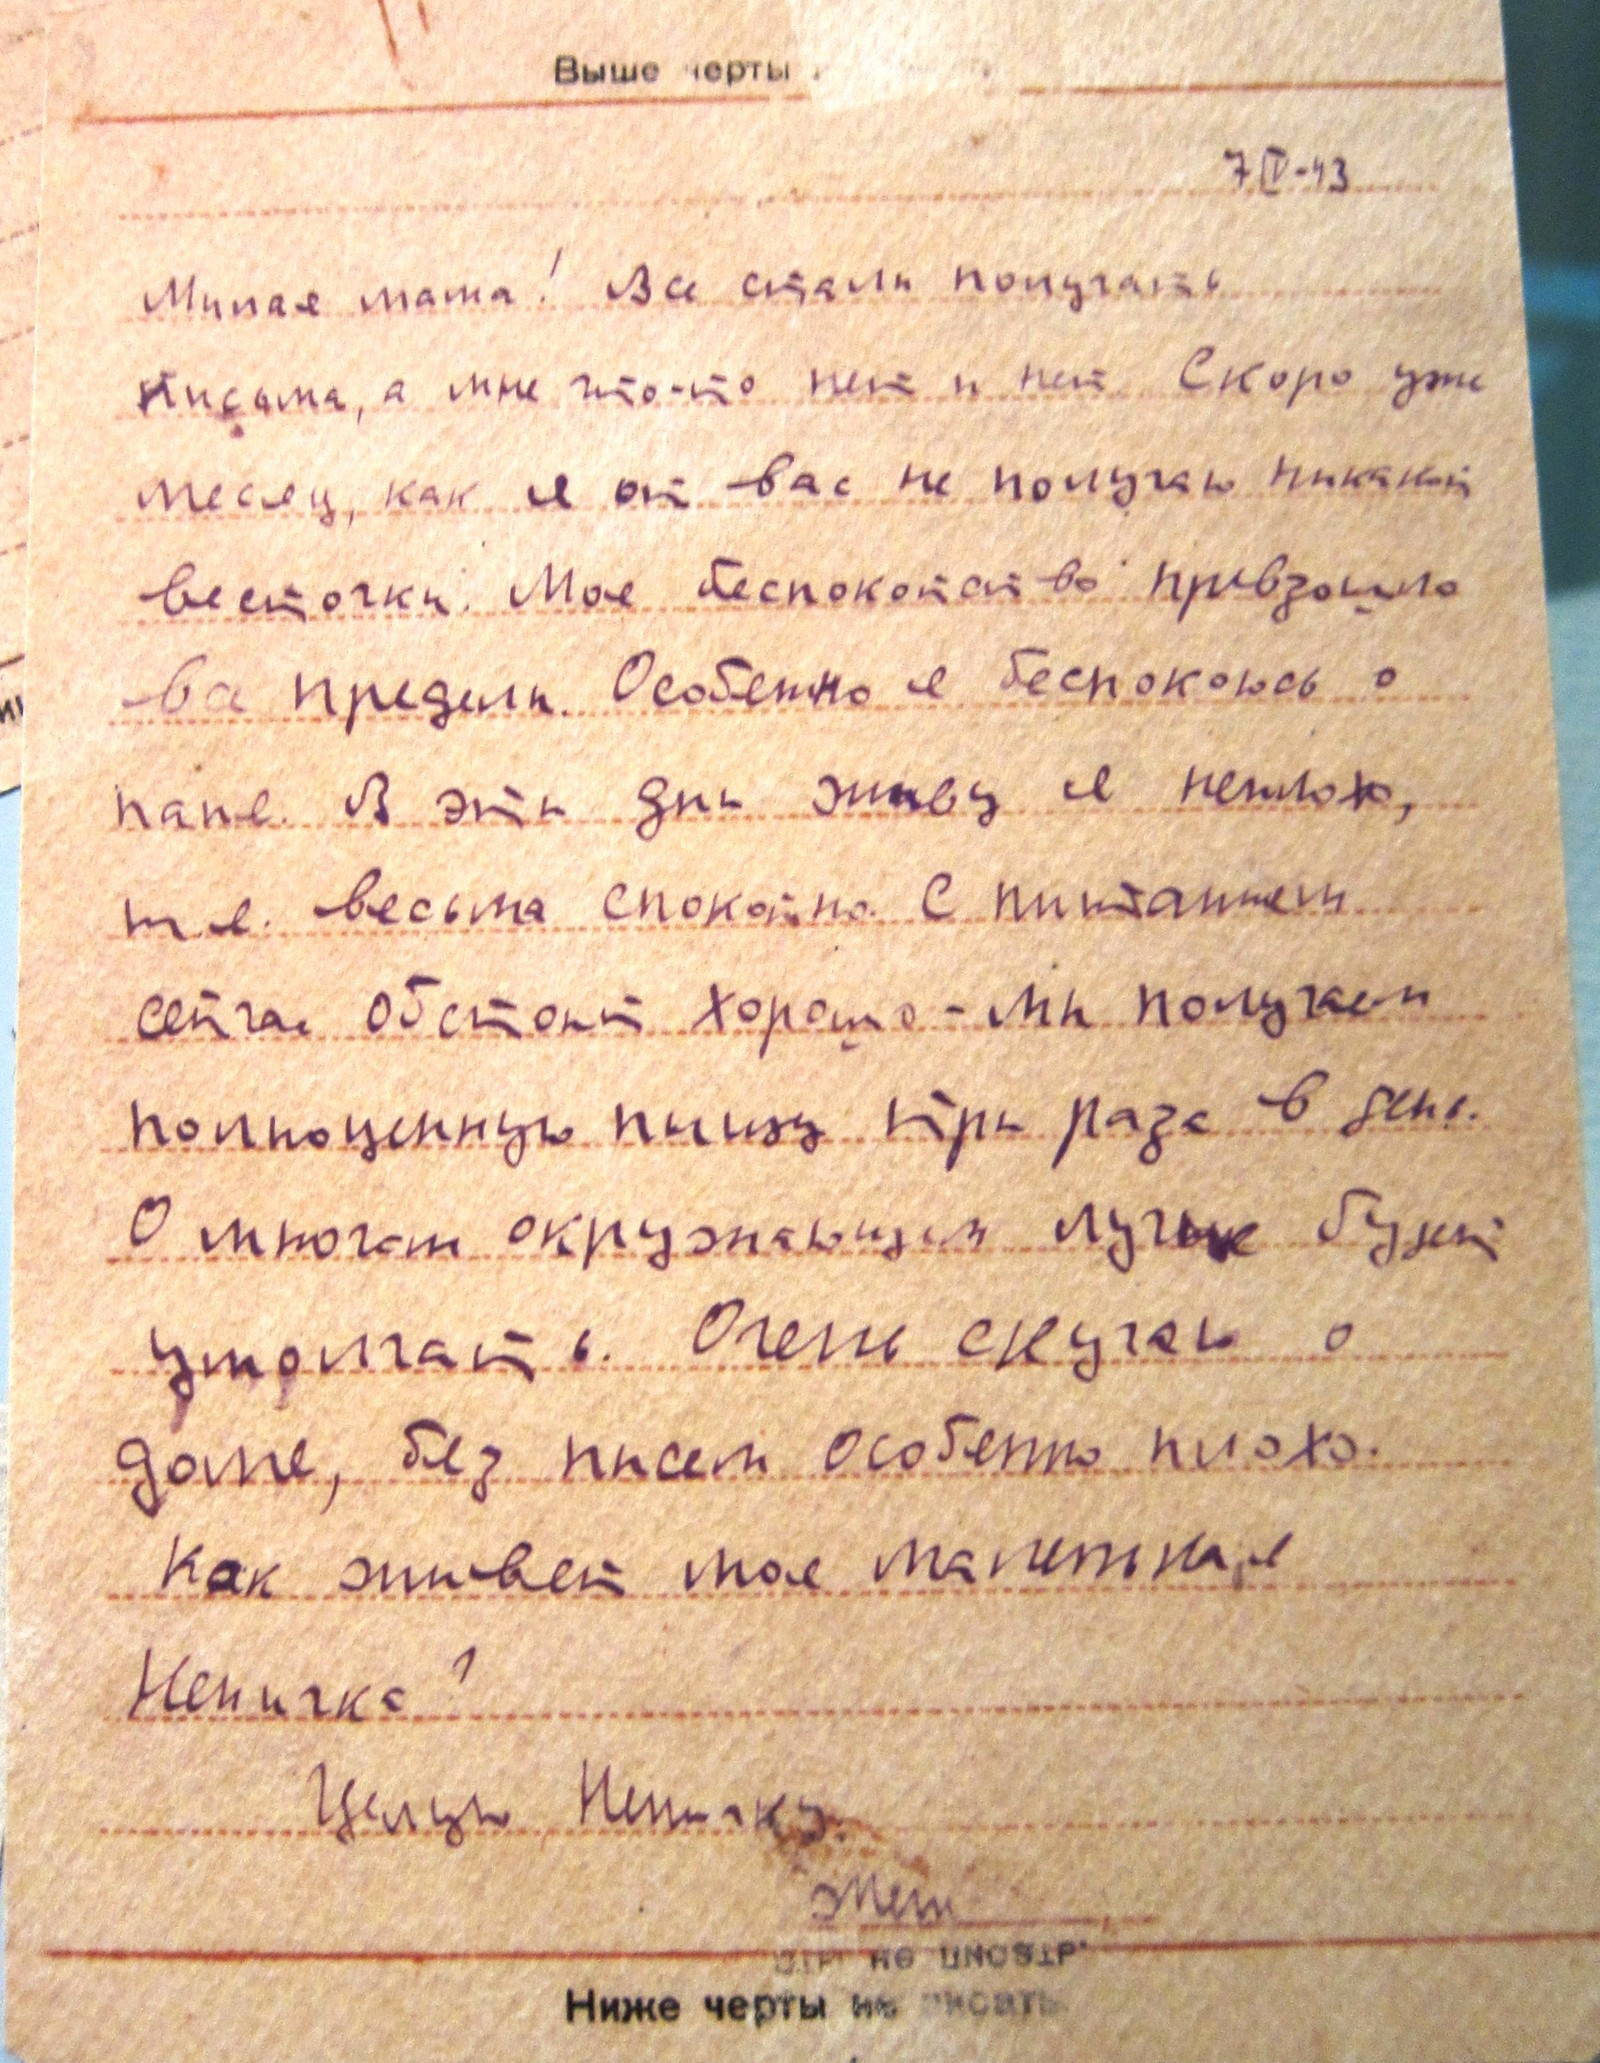 Выше черты
7 IV-43
Милая мама! Все стали получать
письма, а мне что-то нет и нет. Скоро уже
месяц, как я от вас не получаю никакой
весточки. Мое беспокойство превзошло
все пределы. Особенно я беспокоюсь о
папе. В эти дни живу я неплохо,
т.е. весьма спокойно. С питанием
сейчас обстоит хорошо - мы получаем
полноценную пищу три раза в день.
О многом окружающем лучше будет
умолчать. Очень скучаю о
доме, без писем особенно плохо.
Как живет моя маленькая
Неничка?
Целую Неничку.
Женя
Ниже черты не писать